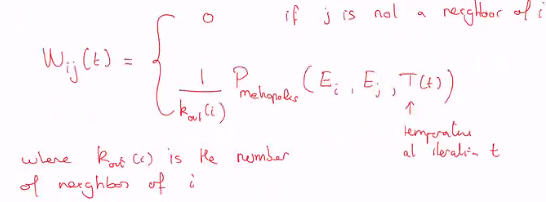 0 if j is not a neighbor of i
W_ij(t) =
1/k_out(i) P_metropolis (E_i, E_j, T(t))
↑
temperature
at iteration t
where k_out(i) is the number
of neighbor of i